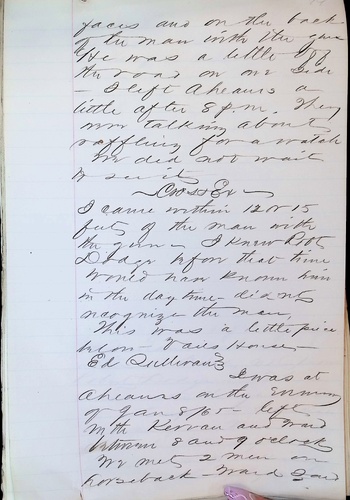 faces and on the back
of the man with the gun
He was a little off
the road on one side
- I left Ahearns a
little after 8 p.m. They
were talking about
raffling for a watch
We did not wait
to see it
Cross Ex
I came within 12 or 15
feet of the man with
the gun - I knew Robt
Dodge before that time
Would have known him
in the day time - did not
recognize the man,
This was a little piece
below House -
Ed Sullivan
I was at
Ahearns on the Evening
of Jan 8/65 - left
with Kervan and Ward
between 8 and 9 oclock
We met 2 men on
horseback - Ward